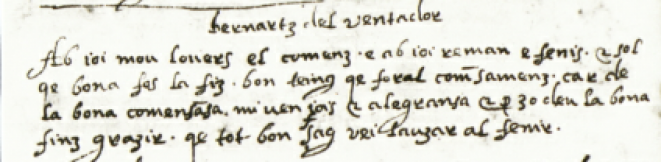 bernartz del ventador
Ab ioi mou lovers el comenz · e ab ioi reman e fenis · & sol
qe bona fes la fiz · bon teing qe foral comsamenz · car de
la bona comensasa · mi uen iois & alegransa & p zo deu la bona
finz grazir · qe tot bon fag vei lauzar al fenir ·